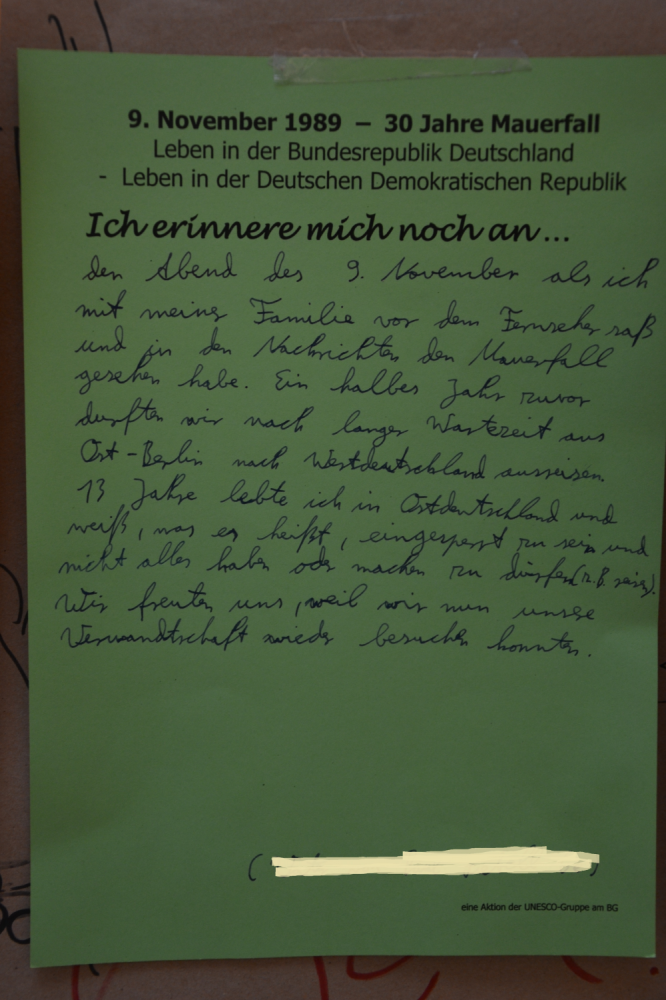 9. November 1989 – 30 Jahre Mauerfall
Leben in der Bundesrepublik Deutschland
- Leben in der Deutschen Demokratischen Republik
Ich erinnere mich noch an ...
den Abend des 9. November als ich
mit meiner Familie vor dem Fernseher saß
und in den Nachrichten den Mauerfall
gesehen habe. Ein halbes Jahr zuvor
durften wir nach langer Wartezeit aus
Ost-Berlin nach Westdeutschland ausreisen.
13 Jahre lebte ich in Ostdeutschland und
weiß, was es heißt, eingesperrt zu sein und
nicht alles haben oder machen zu dürfen (z.B. reisen).
Wir freuten uns, weil wir nun unsere
Verwandtschaft wieder besuchen konnten.
eine Aktion der UNESCO-Gruppe am BG